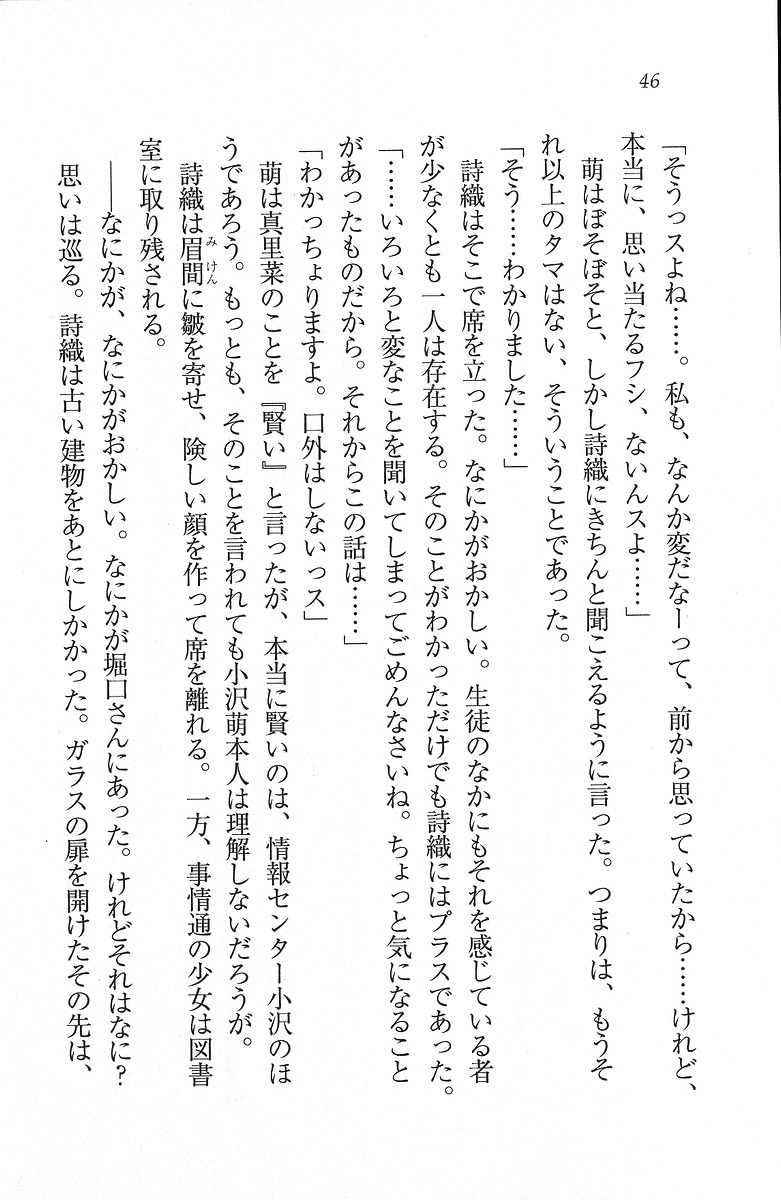 46
「そうっスよね……。私も、なんか変だなーって、前から思っていたから……けれど、
本当に、思い当たるフシ、ないんスよ……」
萌はぼそぼそと、しかし詩織にきちんと聞こえるように言った。つまりは、もうそ
れ以上のタマはない、そういうことであった。
「そう……わかりました……」
詩織はそこで席を立った。なにかがおかしい。生徒のなかにもそれを感じている者
が少なくとも一人は存在する。そのことがわかっただけでも詩織にはプラスであった。
「……いろいろと変なことを聞いてしまってごめんなさいね。ちょっと気になること
があったものだから。それからこの話は……」
「わかっちょりますよ。口外はしないっス」
萌は真里菜のことを『賢い』と言ったが、本当に賢いのは、情報センター小沢のほ
うであろう。もっとも、そのことを言われても小沢萌本人は理解しないだろうが。
詩織は眉間に皺を寄せ、険しい顔を作って席を離れる。一方、事情通の少女は図書
みけん
室に取り残される。
――なにかが、なにかがおかしい。なにかが堀口さんにあった。けれどそれはなに?
思いは巡る。詩織は古い建物をあとにしかかった。ガラスの扉を開けたその先は、